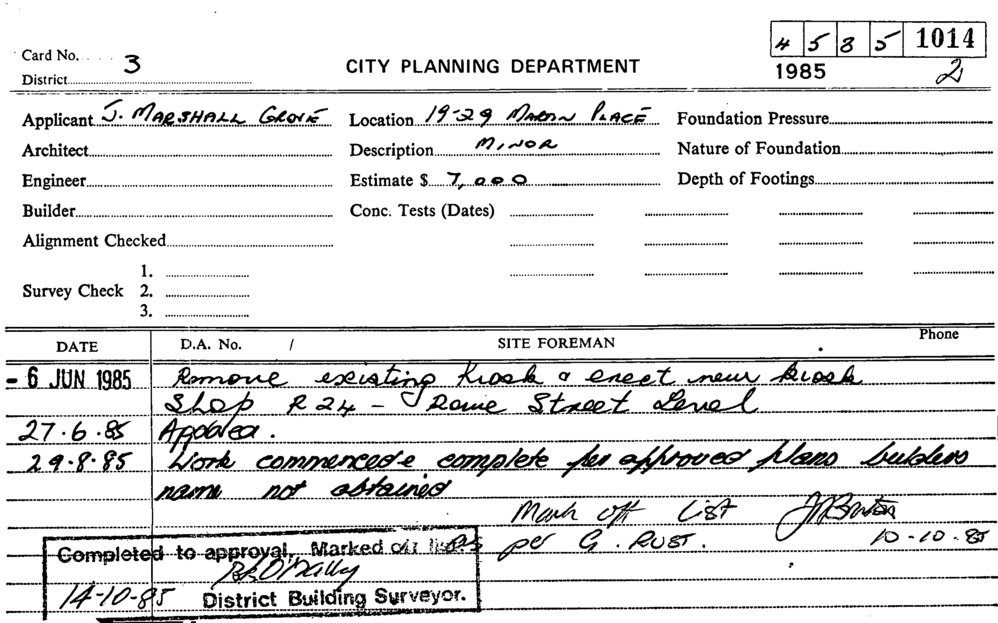 4 5 8 5 1014
Card No. 3
CITY PLANNING DEPARTMENT
1985 2
District
Applicant J. MARSHALL GROVE Location 19-29 MARTIN PLACE Foundation Pressure
Architect Description MINOR Nature of Foundation
Engineer Estimate $ 7,000 Depth of Footings
Builder Conc. Tests (Dates)
Alignment Checked
1.
Survey Check 2.
3.
DATE D.A. No. / SITE FOREMAN Phone
- 6 JUN 1985 Remove existing Kiosk & erect new kiosk
Shop R24 - Rowe Street Level
27.6.85
29.8.85 Work commenced & complete per approved plans builders
name not obtained
Mark off LIST
per G. RUST. 10-10-85
Completed to approval, Marked off
14-10-85 District Building Surveyor.